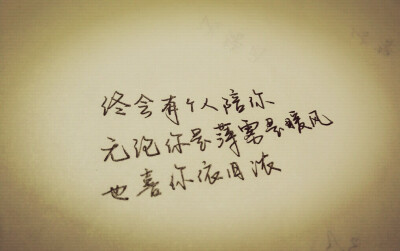 终会有个人陪你
无论你是薄雾是暖风
也喜你依旧浓